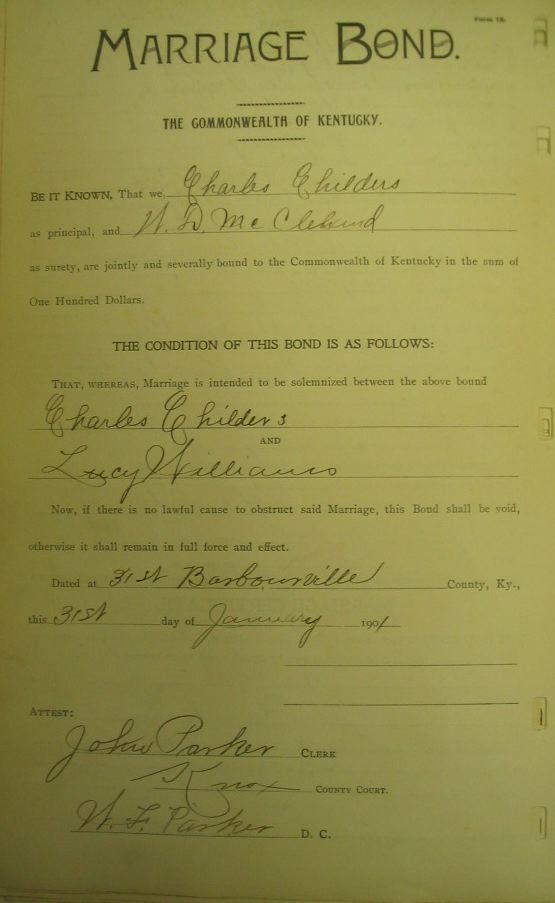 Form 18.
MARRIAGE BOND.
THE COMMONWEALTH OF KENTUCKY.
BE IT KNOWN, That we, Charles Childers
as principal, and W. D. McClelund
as surety, are jointly and severally bound to the Commonwealth of Kentucky in the sum of
One Hundred Dollars.
THE CONDITION OF THIS BOND IS AS FOLLOWS:
THAT, WHEREAS, Marriage is intended to be solemnized between the above bound
Charles Childers
AND
Lucy Williams
Now, if there is no lawful cause to obstruct said Marriage, this Bond shall be void,
otherwise it shall remain in full force and effect.
Dated at 31st Barbourville County, Ky.,
this 31st day of January 1901
ATTEST:
John Parker CLERK
Knox COUNTY COURT.
W. F. Parker D. C.